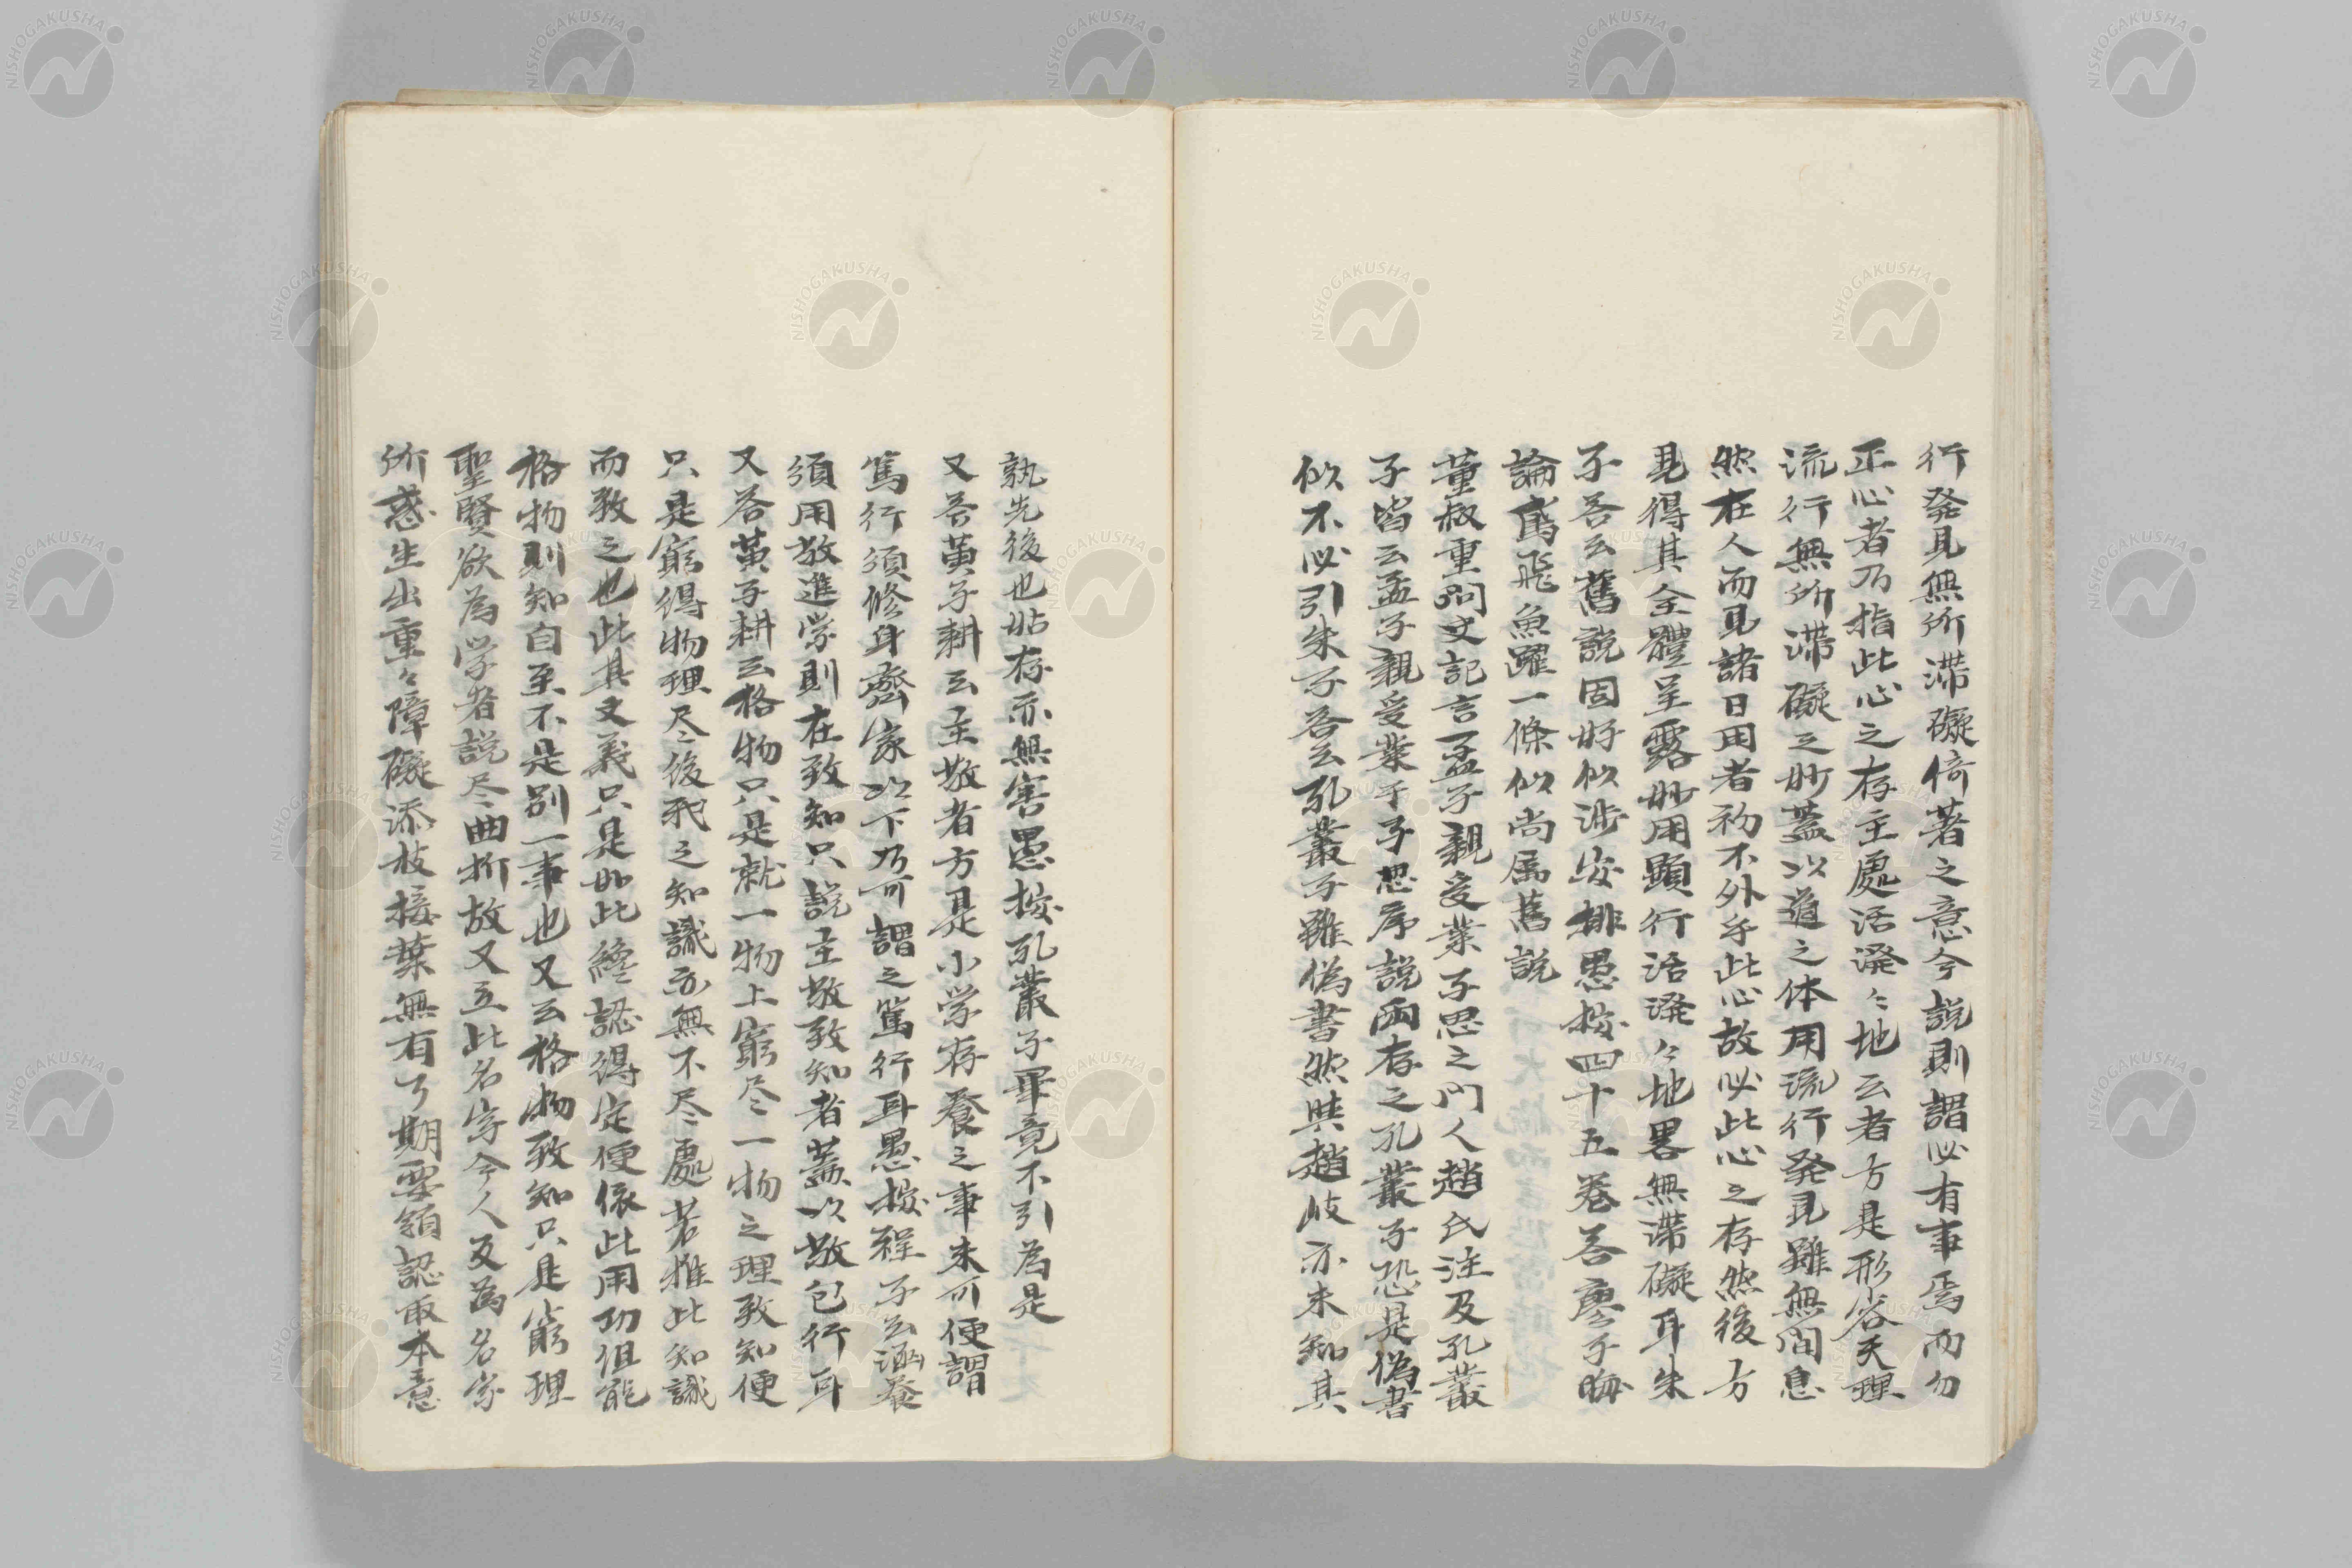 行発見無所滞礙倚著之意今説則謂必有事焉而勿
正心者乃指此心之存主處活溌〻地云者方是形容天理
流行無所滞礙之妙蓋以道之体用流行発見雖無間息
然在人而見諸日用者初不外乎此心故必此心之存然後方
見得其全體呈露妙用顕行活溌〻地畧無滞礙耳朱
子答云舊説固好似渉安排愚按四十五巻答廖子晦
論鳶飛魚躍一條似尚属舊説
董叔重問史記言孟子親受業子思之門人趙氏注及孔叢
子皆云孟子親受業于子思序説両存之孔叢子恐是偽書
似不必引朱子答云孔叢子雖偽書然與趙岐亦未知其
孰先後也姑存亦無害愚按孔叢子畢竟不引為是
又答黄子耕云主敬者方是小学存養之事未可便謂
篤行須修身齊家以下乃可謂之篤行耳愚按程子云涵養
須用敬進学則在致知只説主敬致知者蓋以敬包行耳
又答黄子耕云格物只是就一物上窮尽一物之理致知便
只是窮得物理尽後我之知識亦無不尽處若推此知識
而致之也此其文義只是如此纔認得定便依此用功但能
格物則知自至不是別一事也又云格物致知只是窮理
聖賢欲為学者説尽曲折故又立此名字今人反為名字
所惑生出重〻障礙添枝接葉無有了期要須認取本意